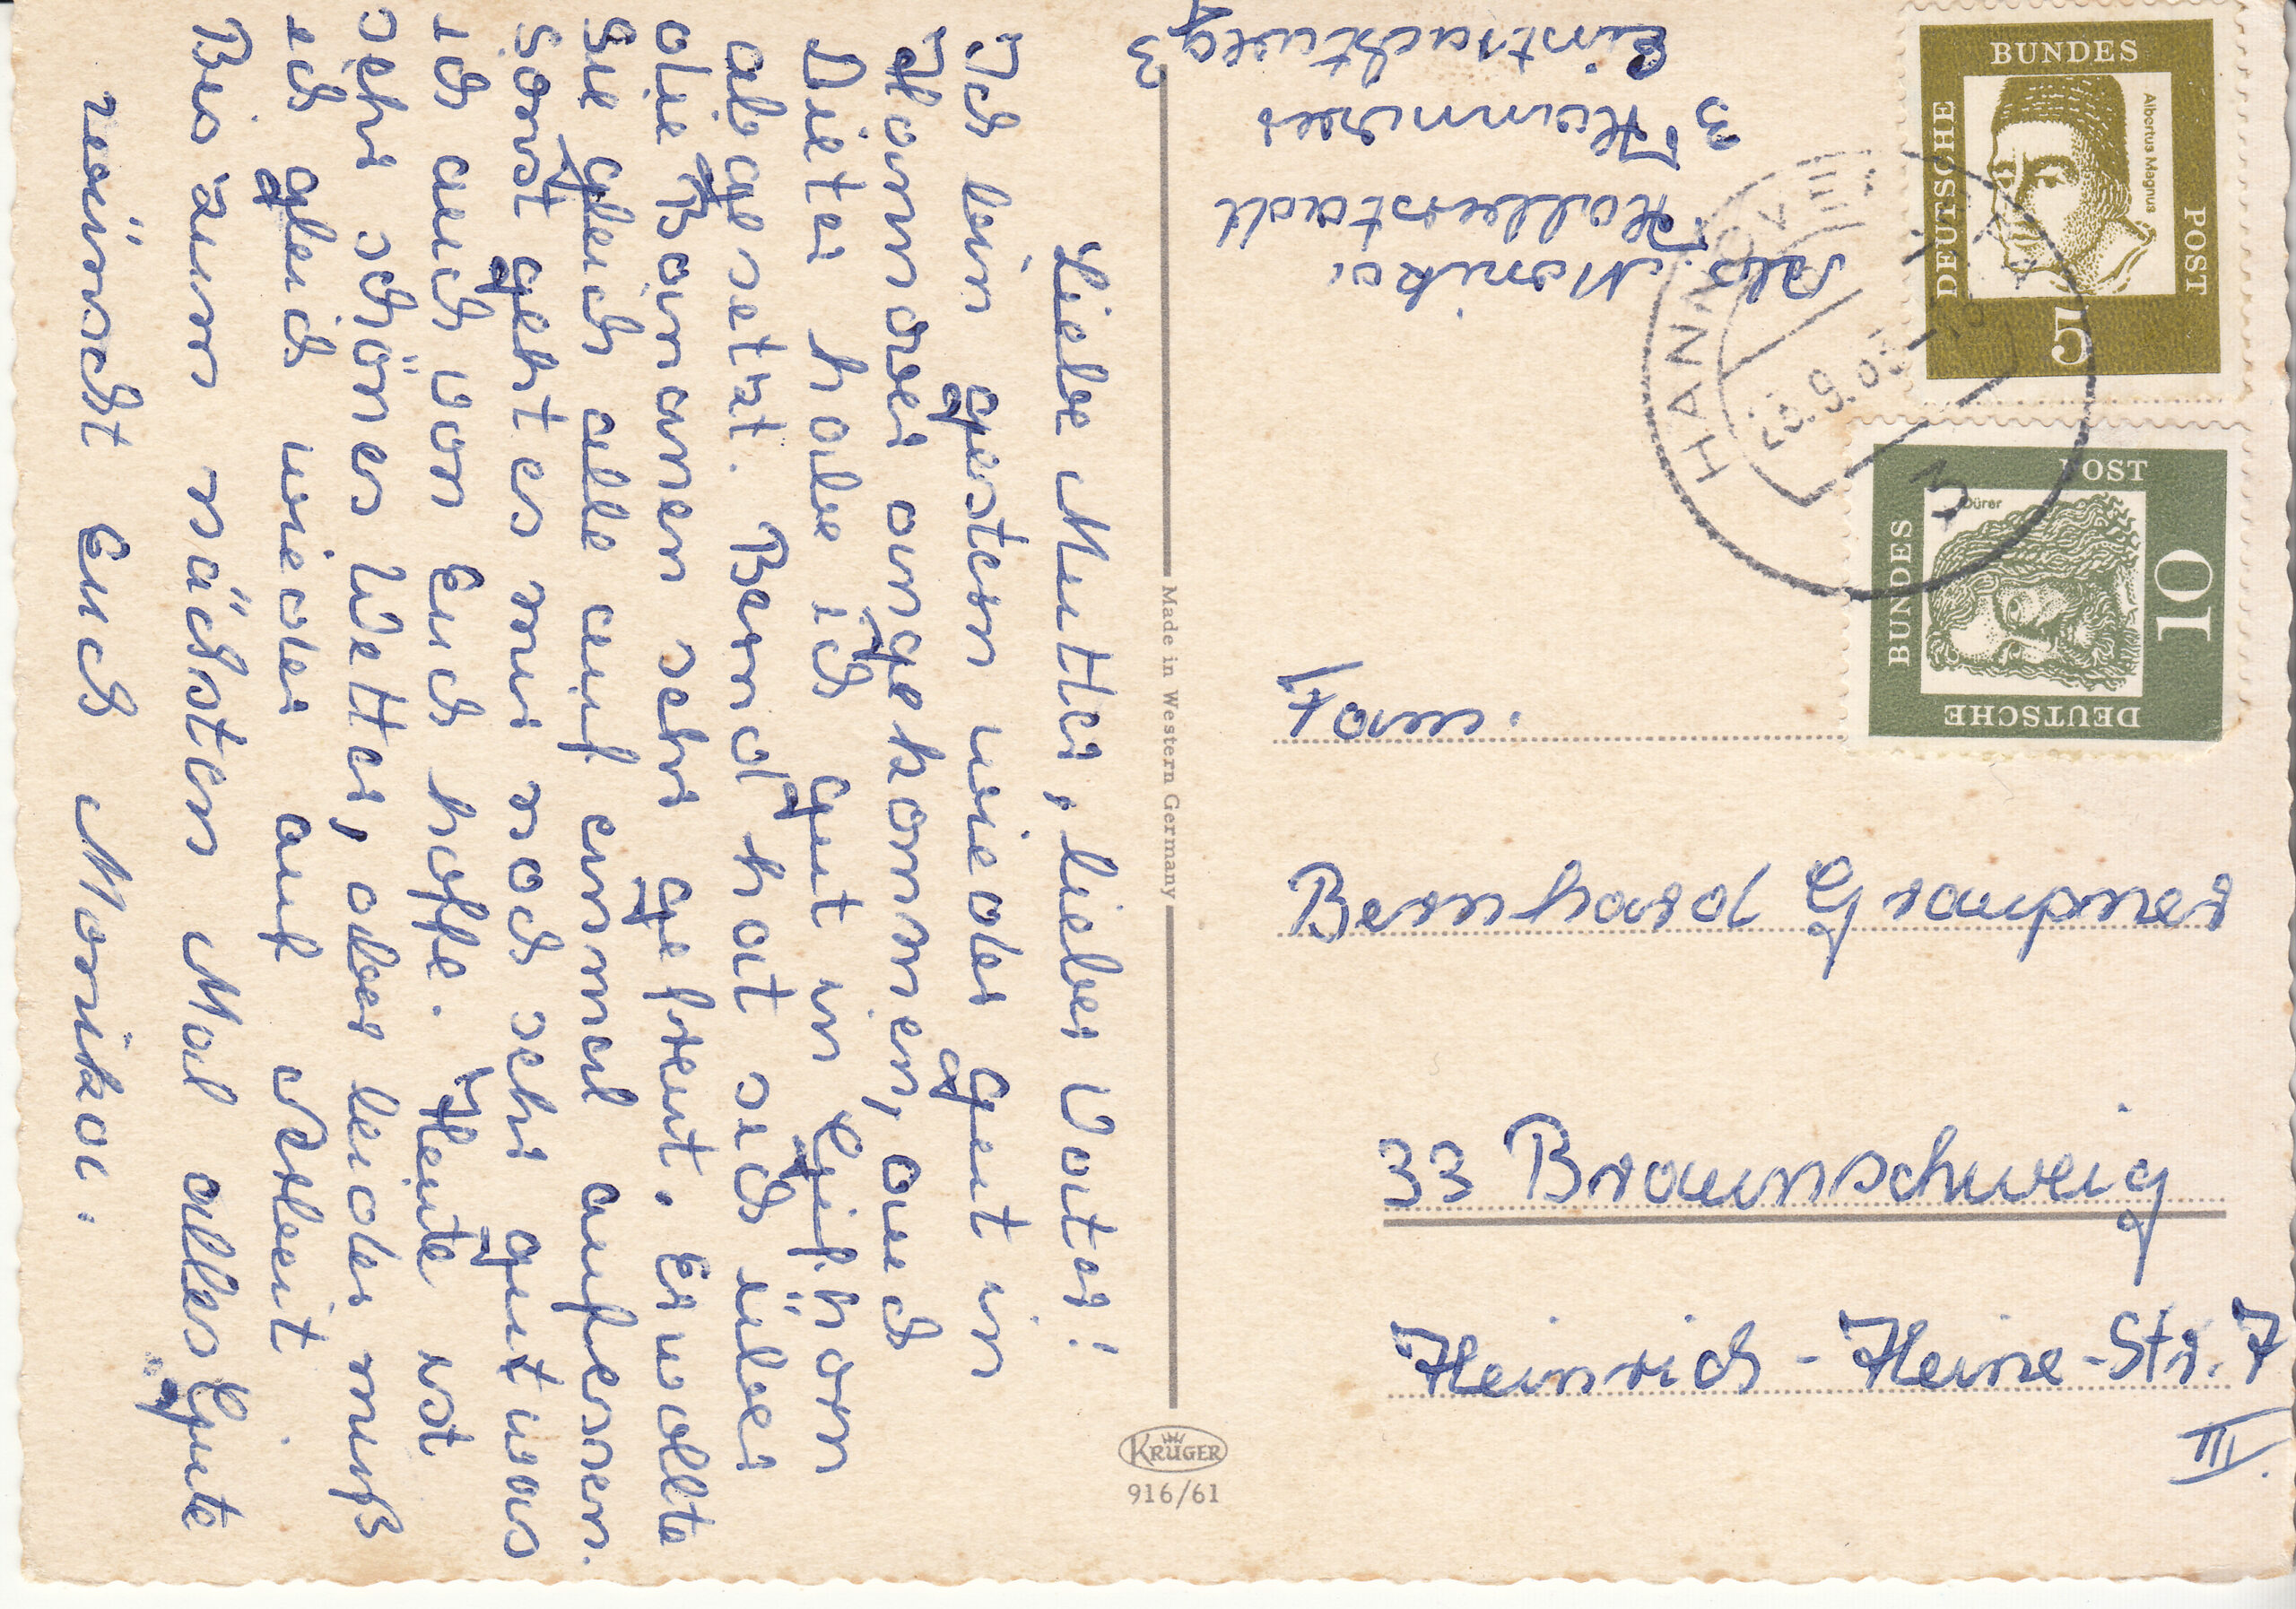 Liebe Mutter, lieber Vater!
Ich bin gestern wieder gut in
Hannover angekommen, auch
Dieter habe ich gut in Gifhorn
abgesetzt. Bernd hat sich über
die Bananen sehr gefreut. Er wollte
sie gleich alle auf einmal aufessen.
Sonst geht es mir noch sehr gut was
ich auch von Euch hoffe. Heute ist
sehr schönes Wetter, aber leider muß
ich gleich wieder auf Arbeit.
Bis zum nächsten Mal alles Gute
wünscht Euch Monika.
Made in Western Germany
KRÜGER
916/61
Abs.
Monika
Halberstadt
3 Hannover
Eintrachtweg
3
HANNOVER
3
DEUTSCHE
BUNDES
POST
Albertus Magnus
5
DEUTSCHE
BUNDES
POST
Dürer
10
Fam.
Bernhard Graupner
33 Braunschweig
Heinrich-Heine-Str. 7
III.